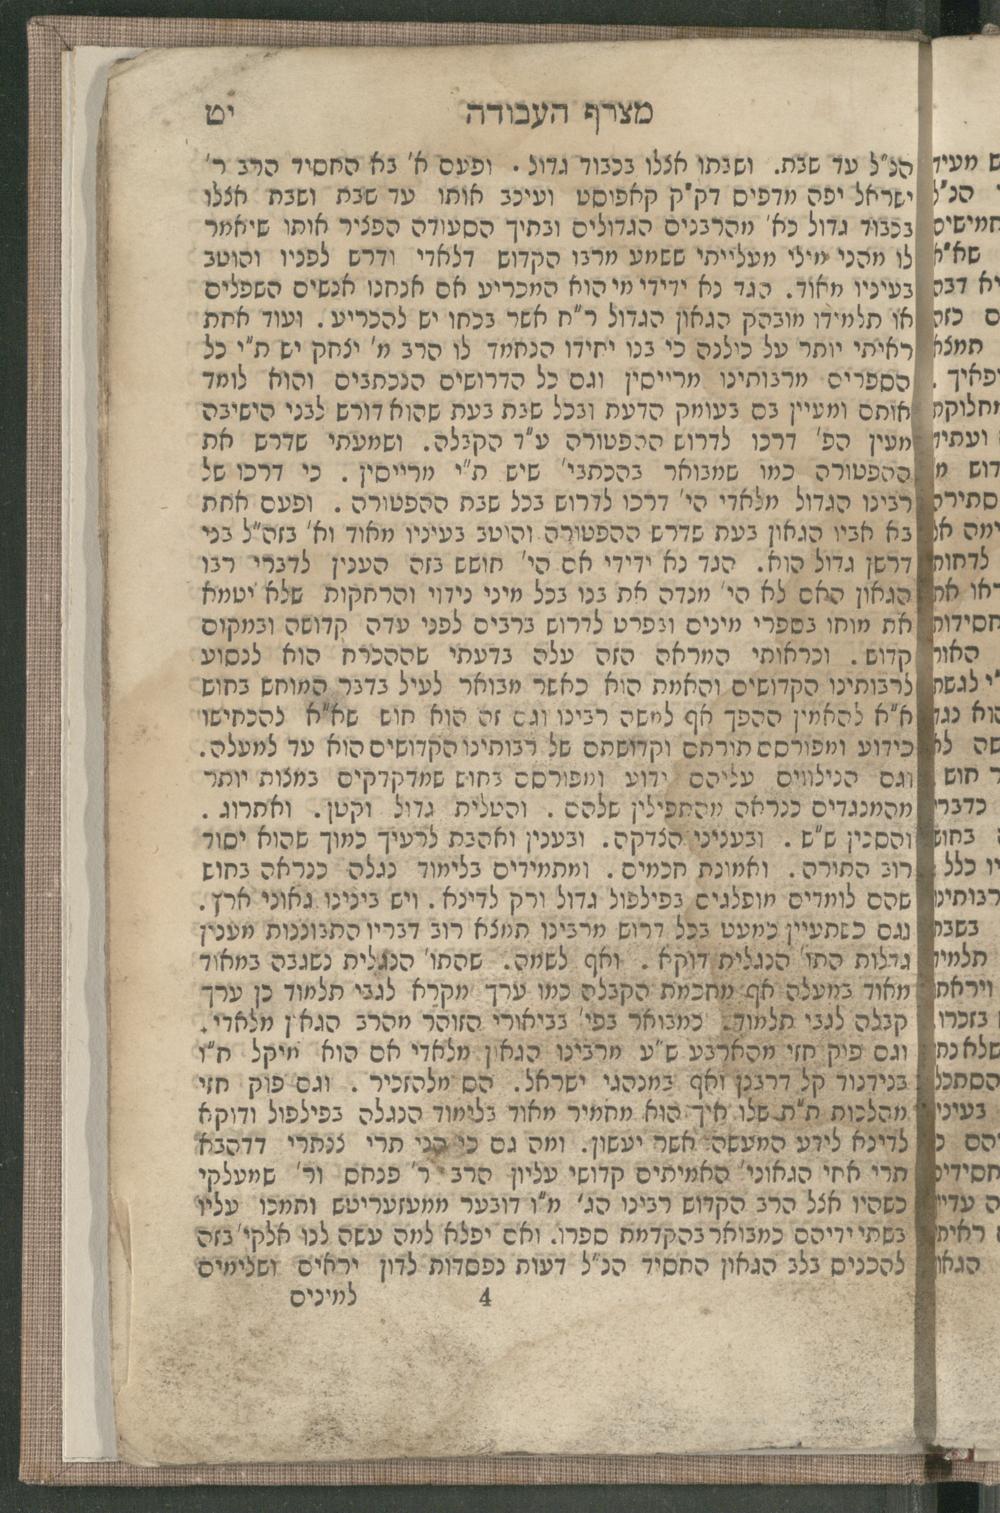 מצרף העבודה יט
הנ"ל עד שבת. ושבתו אצלו בכבוד גדול. ופעם א' בא החסיד הרב ר'
ישראל יפה מדפיס דק"ק קאפוסט ועיכב אותו עד שבת ושבת אצלו
בכבוד גדול כא' מהרבנים הגדולים ובתוך הסעודה הפציר אותו שיאמר
לו מהני מילי מעלייתי ששמע מרבו הקדוש דלאדי ודרש לפניו והוטב
בעיניו מאוד. הגד נא ידידי מי הוא המכריע אם אנחנו אנשים השפלים
או תלמידו מובהק הגאון הגדול ר"ח אשר בכחו יש להכריע. ועוד אחת
ראיתי יותר על כולנה כי בנו יחידו הנחמד לו הרב מ' יצחק יש ת"י כל
הספרים מרבותינו מרייסין וגם כל הדרושים הנכתבים והוא לומד
אותם ומעיין בם בעומק הדעת ובכל שבת בעת שהוא דורש לבני הישיבה
מעין הפ' דרכו לדרוש ההפטורה ע"ד הקבלה. ושמעתי שדרש את
ההפטורה כמו שמבואר בהכתבי' שיש ת"י מרייסין. כי דרכו של
רבינו הגדול מלאדי הי' דרכו לדרוש בכל שבת ההפטורה. ופעם אחת
בא אביו הגאון בעת שדרש ההפטורה והוטב בעיניו מאוד וא' בזה"ל בני
דרשן גדול הוא. הגד נא ידידי אם הי' חושש בזה הענין לדברי רבו
הגאון האם לא הי' מנדה את בנו בכל מיני נידוי והרחקות שלא יטמא
את מוחו בספרי מינים ובפרט לדרוש ברבים לפני עדה קדושה ובמקום
קדוש. וכראותי המראה הזה עלה בדעתי שההכרח הוא לנסוע
לרבותינו הקדושים והאמת הוא כאשר מבואר לעיל בדבר המוחש בחוש
א"א להאמין ההפך אף למשה רבינו וגם זה הוא חוש שא"א להכחישו
כידוע ומפורסם תורתם וקדושתם של רבותינו הקדושים הוא עד למעלה.
וגם הנילווים עליהם ידוע ומפורסם בחוש שמדקדקים במצות יותר
מהמנגדים כנראה מהתפילין שלהם. והטלית גדול וקטן. ואתרוג.
והסכין ש"ש. ובעניני הצדקה. ובענין ואהבת לרעיך כמוך שהוא יסוד
רוב התורה. ואמונת חכמים. ומתמידים בלימוד נגלה כנראה בחוש
שהם לומדים מופלגים בפילפול גדול ורק לדינא. ויש בינינו גאוני ארץ.
וגם כשתעיין כמעט בכל דרוש מרבינו תמצא רוב דבריו התבוננות מענין
גדלות התו' הנגלית דוקא. ואף לשמה. שהתו' הנגלית נשגבה במאוד
מאוד במעלה אף מחכמת הקבלה כמו ערך מקרא לגבי תלמוד כן ערך
קבלה לגבי תלמוד. כמבואר בפי' בביאורי הזוהר מהרב הגאון מלאדי.
וגם פוק חזי מהארבע ש"ע מרבינו הגאון מלאדי אם הוא מיקל ח"ו
בנידנוד קל דרבנן ואף במנהגי ישראל. הס מלהזכיר. וגם פוק חזי
מהלכות ת"ת שלו איך הוא מחמיר מאוד בלימוד הנגלה בפילפול ודוקא
לדינא לידע המעשה אשר יעשון. ומה גם כי הני תרי צנתרי דדהבא
תרי אחי הגאוני' האמיתים קדושי עליון הרב ר' פנחס ור' שמעלקי
כשהיו אצל הרב הקדוש רבינו הג' מ"ו דובער ממעזעריטש ותמכו עליו
בשתי ידיהם כמבואר בהקדמת ספרו. ואם יפלא למה עשה לנו אלקי' בזה
להכנים בלב הגאון החסיד הנ"ל דעות נפסדות לדון יראים ושלימים
4 למינים